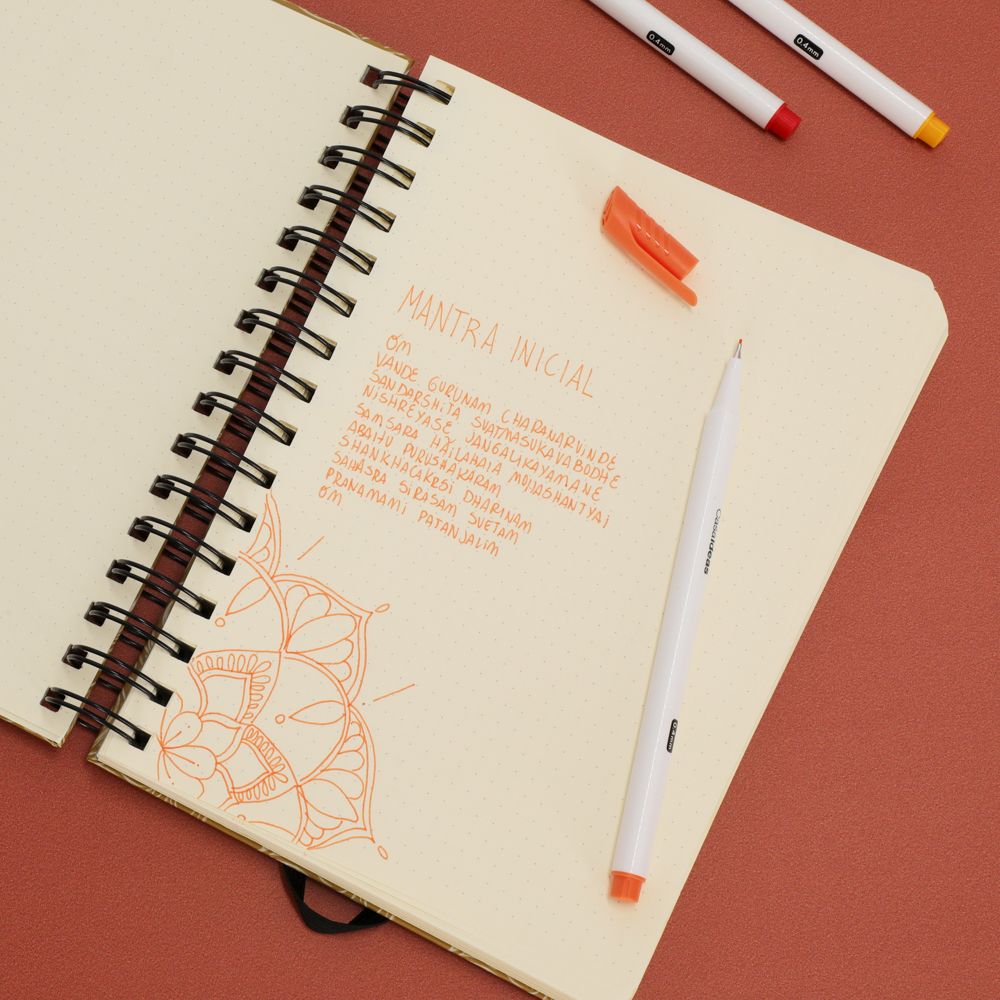 MANTRA INICIAL
OM
VANDE GURUNAM CHARANARVINDE
SANDARSHITA SVATMASUKAVABODHE
NISHREYASE JANGALIKAYAMANE
SAMSARA HALAHALA MOHASHANTYAI
ABAHU PURUSHAKARAM
SHANKHACAKRSI DHARINAM
SAHASRA SIRASAM SVETAM
PRANAMAMI PATANJALIM
OM
casaideas
0.4mm
0.4mm
0.4mm